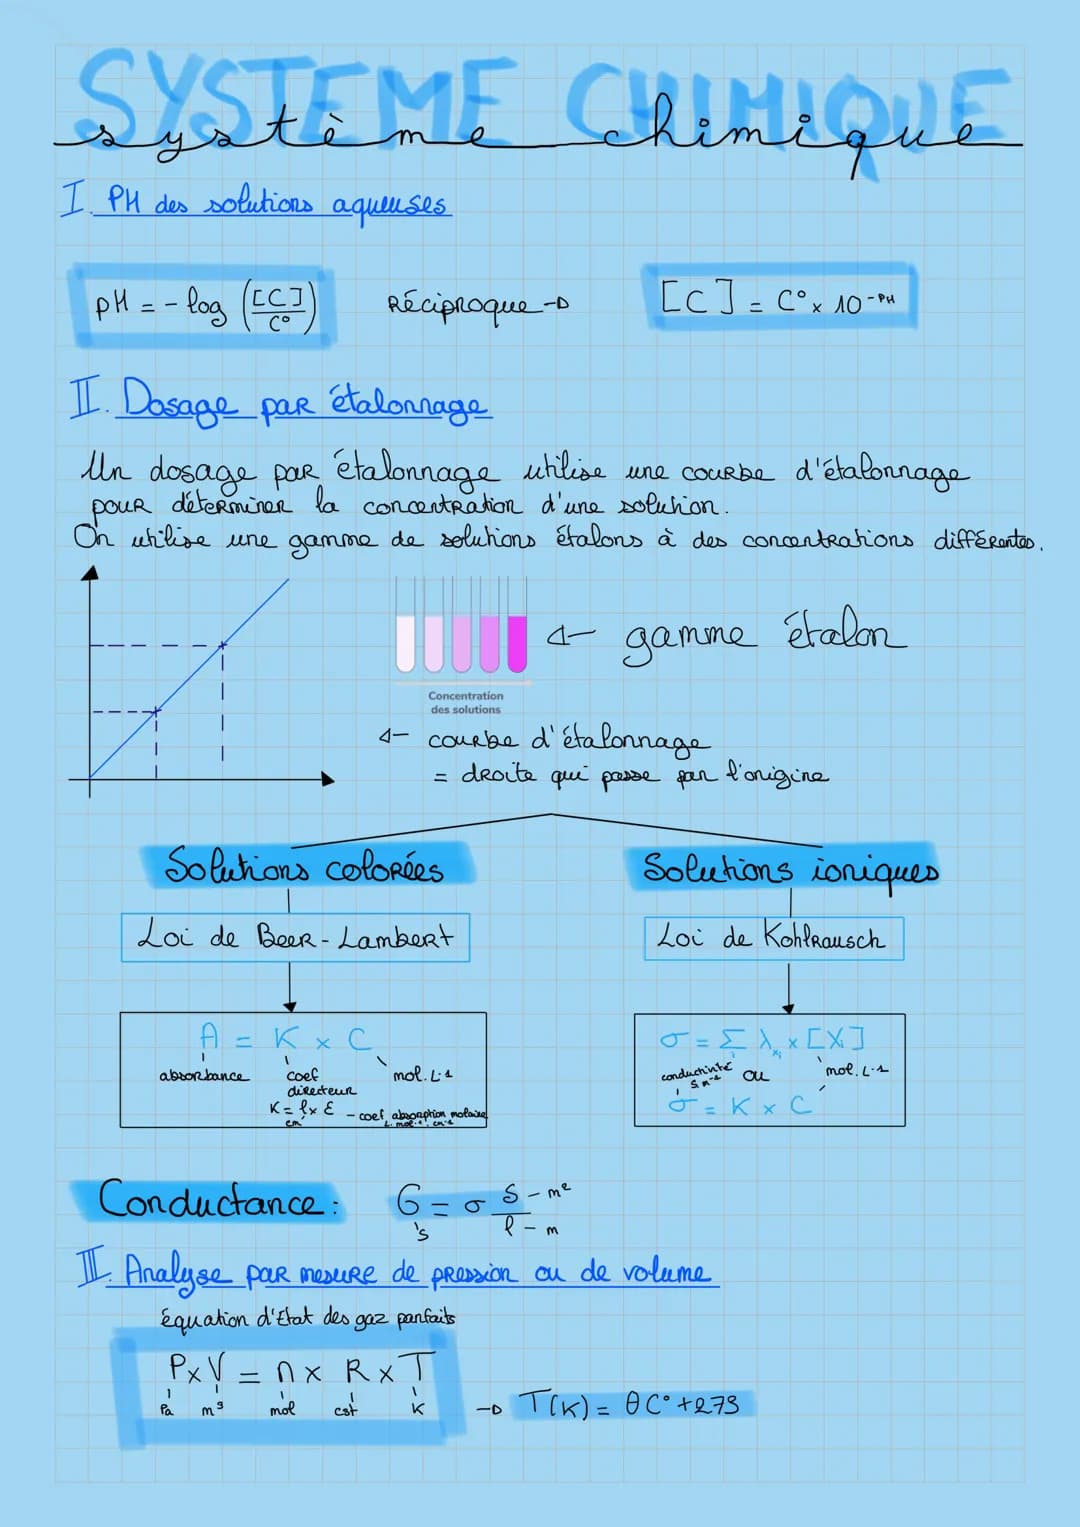 SYSTEME CHIMIQUE
système chimique
I. PH des solutions aqueuses
pH = - log ([C]/C°)
Réciproque →
[C] = C° × 10^-PH
II. Dosage par étalonnage
Un dosage par étalonnage utilise une courbe d'étalonnage
pour déterminer la concentration d'une solution.
On utilise une gamme de solutions étalons à des concentrations différentes.
← gamme étalon
Concentration
des solutions
← courbe d'étalonnage
= droite qui passe par l'origine
Solutions colorées
Solutions ioniques
Loi de Beer-Lambert
Loi de Kohlrausch
A = K × C
absorbance
coef
directeur
mol.L-1
K = l × ε - coef absorption molaire
cm
L.mol-1.cm-1
σ = Σ λxi × [Xi]
i
conductivité
S m-1
ou
mol.L-1
σ = K × C
Conductance: G = σ S/l
S
- m²
- m
III. Analyse par mesure de pression ou de volume
équation d'Etat des gaz parfaits
P × V = n × R × T
Pa m³ mol cst K
→ T(K) = θ C° + 273